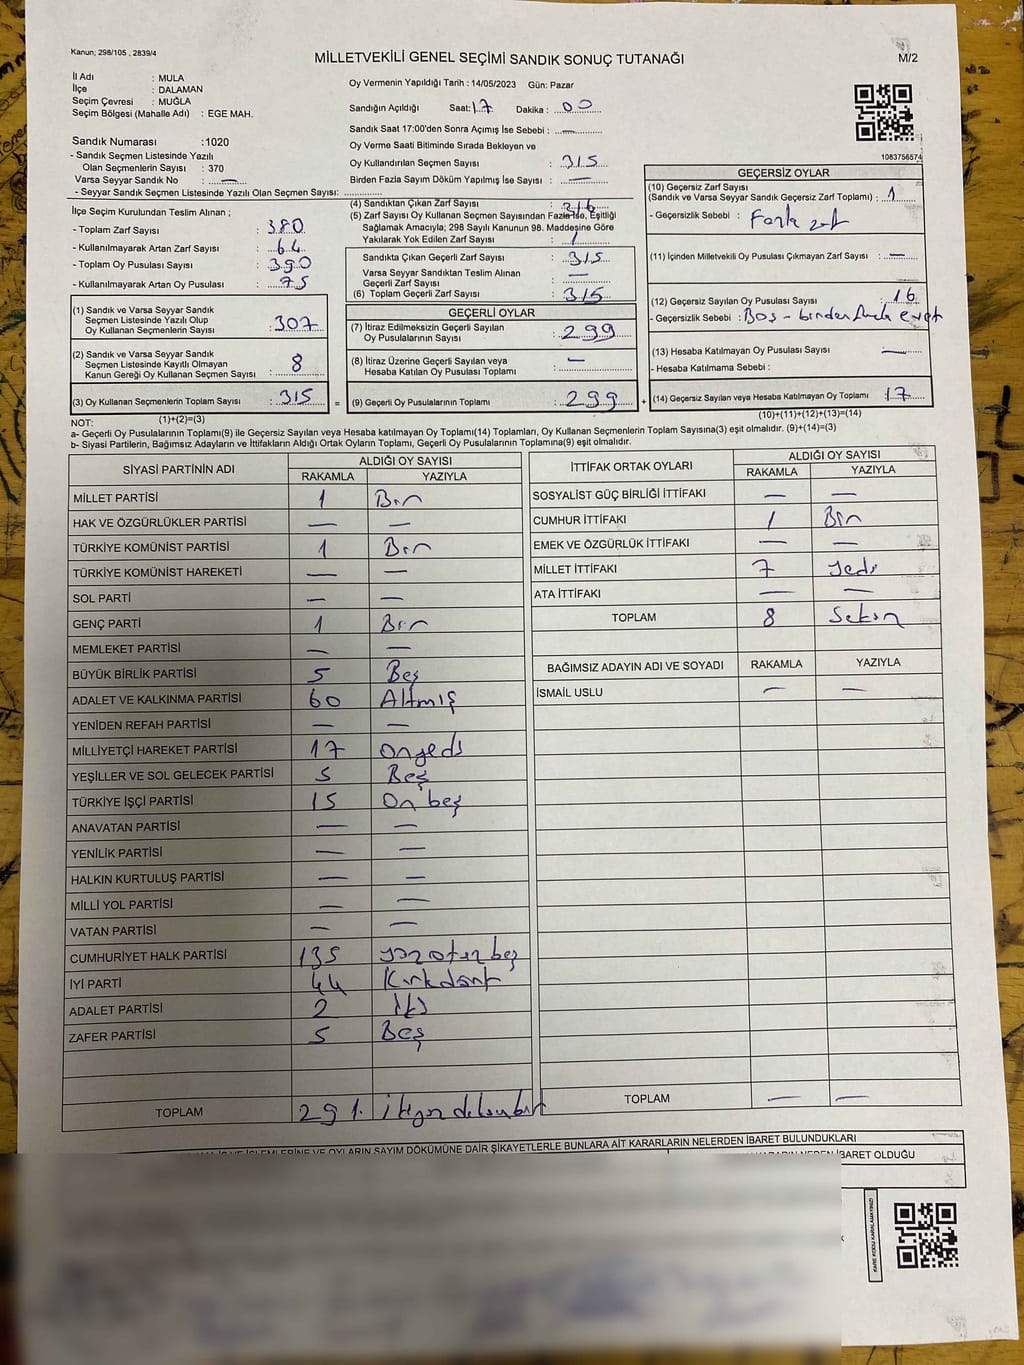 Kanun; 298/105 , 2839/4
MİLLETVEKİLİ GENEL SEÇİMİ SANDIK SONUÇ TUTANAĞI
M/2
İl Adı : MULA
İlçe : DALAMAN
Seçim Çevresi : MUĞLA
Seçim Bölgesi (Mahalle Adı) : EGE MAH.
Oy Vermenin Yapıldığı Tarih : 14/05/2023 Gün: Pazar
Sandığın Açıldığı Saat: 17 Dakika : 00
Sandık Saat 17:00'den Sonra Açımış İse Sebebi : —
Oy Verme Saati Bitiminde Sırada Bekleyen ve
Oy Kullandırılan Seçmen Sayısı : 315
Birden Fazla Sayım Döküm Yapılmış İse Sayısı : —
1083756574
Sandık Numarası :1020
- Sandık Seçmen Listesinde Yazılı
Olan Seçmenlerin Sayısı : 370
Varsa Seyyar Sandık No : —
- Seyyar Sandık Seçmen Listesinde Yazılı Olan Seçmen Sayısı:
İlçe Seçim Kurulundan Teslim Alınan ;
- Toplam Zarf Sayısı : 380
- Kullanılmayarak Artan Zarf Sayısı : 64
- Toplam Oy Pusulası Sayısı : 390
- Kullanılmayarak Artan Oy Pusulası : 75
(1) Sandık ve Varsa Seyyar Sandık
Seçmen Listesinde Yazılı Olup
Oy Kullanan Seçmenlerin Sayısı : 307
(2) Sandık ve Varsa Seyyar Sandık
Seçmen Listesinde Kayıtlı Olmayan
Kanun Gereği Oy Kullanan Seçmen Sayısı : 8
(3) Oy Kullanan Seçmenlerin Toplam Sayısı : 315 =
(4) Sandıktan Çıkan Zarf Sayısı : 316
(5) Zarf Sayısı Oy Kullanan Seçmen Sayısından Fazla İse, Eşitliği
Sağlamak Amacıyla; 298 Sayılı Kanunun 98. Maddesine Göre
Yakılarak Yok Edilen Zarf Sayısı : 1
Sandıkta Çıkan Geçerli Zarf Sayısı : 315
Varsa Seyyar Sandıktan Teslim Alınan
Geçerli Zarf Sayısı : —
(6) Toplam Geçerli Zarf Sayısı : 315
GEÇERLİ OYLAR
(7) İtiraz Edilmeksizin Geçerli Sayılan
Oy Pusulalarının Sayısı : 299
(8) İtiraz Üzerine Geçerli Sayılan veya
Hesaba Katılan Oy Pusulası Toplamı : —
(9) Geçerli Oy Pusulalarının Toplamı : 299 +
GEÇERSİZ OYLAR
(10) Geçersiz Zarf Sayısı
(Sandık ve Varsa Seyyar Sandık Geçersiz Zarf Toplamı) : 1
- Geçersizlik Sebebi : Fazla zarf
(11) İçinden Milletvekili Oy Pusulası Çıkmayan Zarf Sayısı : —
(12) Geçersiz Sayılan Oy Pusulası Sayısı : 16
- Geçersizlik Sebebi : Boş - birden fazla evet
(13) Hesaba Katılmayan Oy Pusulası Sayısı : —
- Hesaba Katılmama Sebebi :
(14) Geçersiz Sayılan veya Hesaba Katılmayan Oy Toplamı : 17
NOT: (1)+(2)=(3)
(10)+(11)+(12)+(13)=(14)
a- Geçerli Oy Pusulalarının Toplamı(9) ile Geçersiz Sayılan veya Hesaba Katılmayan Oy Toplamı(14) Toplamları, Oy Kullanan Seçmenlerin Toplam Sayısına(3) eşit olmalıdır. (9)+(14)=(3)
b- Siyasi Partilerin, Bağımsız Adayların ve İttifakların Aldığı Ortak Oyların Toplamı, Geçerli Oy Pusulalarının Toplamına(9) eşit olmalıdır.
SİYASİ PARTİNİN ADI ALDIĞI OY SAYISI
RAKAMLA YAZIYLA
MİLLET PARTİSİ 1 Bir
HAK VE ÖZGÜRLÜKLER PARTİSİ — —
TÜRKİYE KOMÜNİST PARTİSİ 1 Bir
TÜRKİYE KOMÜNİST HAREKETİ — —
SOL PARTİ — —
GENÇ PARTİ 1 Bir
MEMLEKET PARTİSİ — —
BÜYÜK BİRLİK PARTİSİ 5 Beş
ADALET VE KALKINMA PARTİSİ 60 Altmış
YENİDEN REFAH PARTİSİ — —
MİLLİYETÇİ HAREKET PARTİSİ 17 onyedi
YEŞİLLER VE SOL GELECEK PARTİSİ 5 Beş
TÜRKİYE İŞÇİ PARTİSİ 15 On beş
ANAVATAN PARTİSİ — —
YENİLİK PARTİSİ — —
HALKIN KURTULUŞ PARTİSİ — —
MİLLİ YOL PARTİSİ — —
VATAN PARTİSİ — —
CUMHURİYET HALK PARTİSİ 135 yüzotuzbeş
İYİ PARTİ 44 Kırkdört
ADALET PARTİSİ 2 İki
ZAFER PARTİSİ 5 Beş
TOPLAM 291 ikiyüzdoksanbir
İTTİFAK ORTAK OYLARI ALDIĞI OY SAYISI
RAKAMLA YAZIYLA
SOSYALİST GÜÇ BİRLİĞİ İTTİFAKI — —
CUMHUR İTTİFAKI 1 Bir
EMEK VE ÖZGÜRLÜK İTTİFAKI — —
MİLLET İTTİFAKI 7 yedi
ATA İTTİFAKI — —
TOPLAM 8 Sekiz
BAĞIMSIZ ADAYIN ADI VE SOYADI RAKAMLA YAZIYLA
İSMAİL USLU — —
TOPLAM — —
İŞLEMLERİNE VE OYLARIN SAYIM DÖKÜMÜNE DAİR ŞİKAYETLERLE BUNLARA AİT KARARLARIN NELERDEN İBARET BULUNDUKLARI
İBARET OLDUĞU